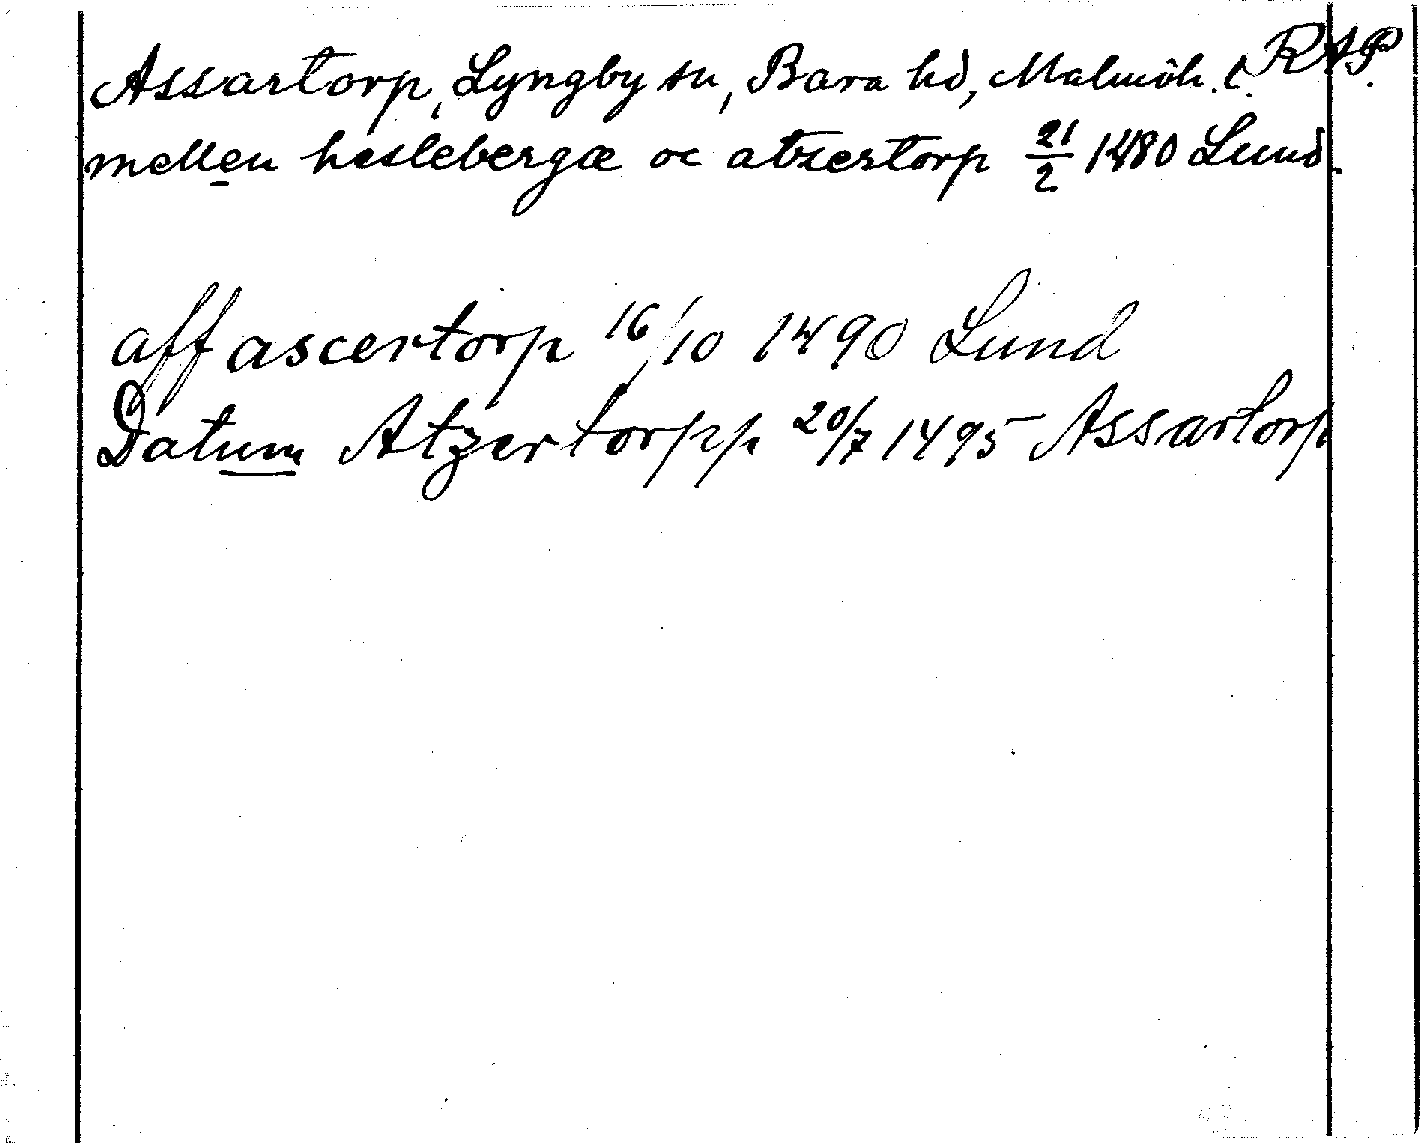 Assartorp, Lyngby sn, Bara hd, Malmöh. l. RAP.
mellen heslebergæ oc atzertorp 21/2 1480 Lund.
aff ascertorp 16/10 1490 Lund
Datum Atzertorpp 20/7 1495 Assartorp